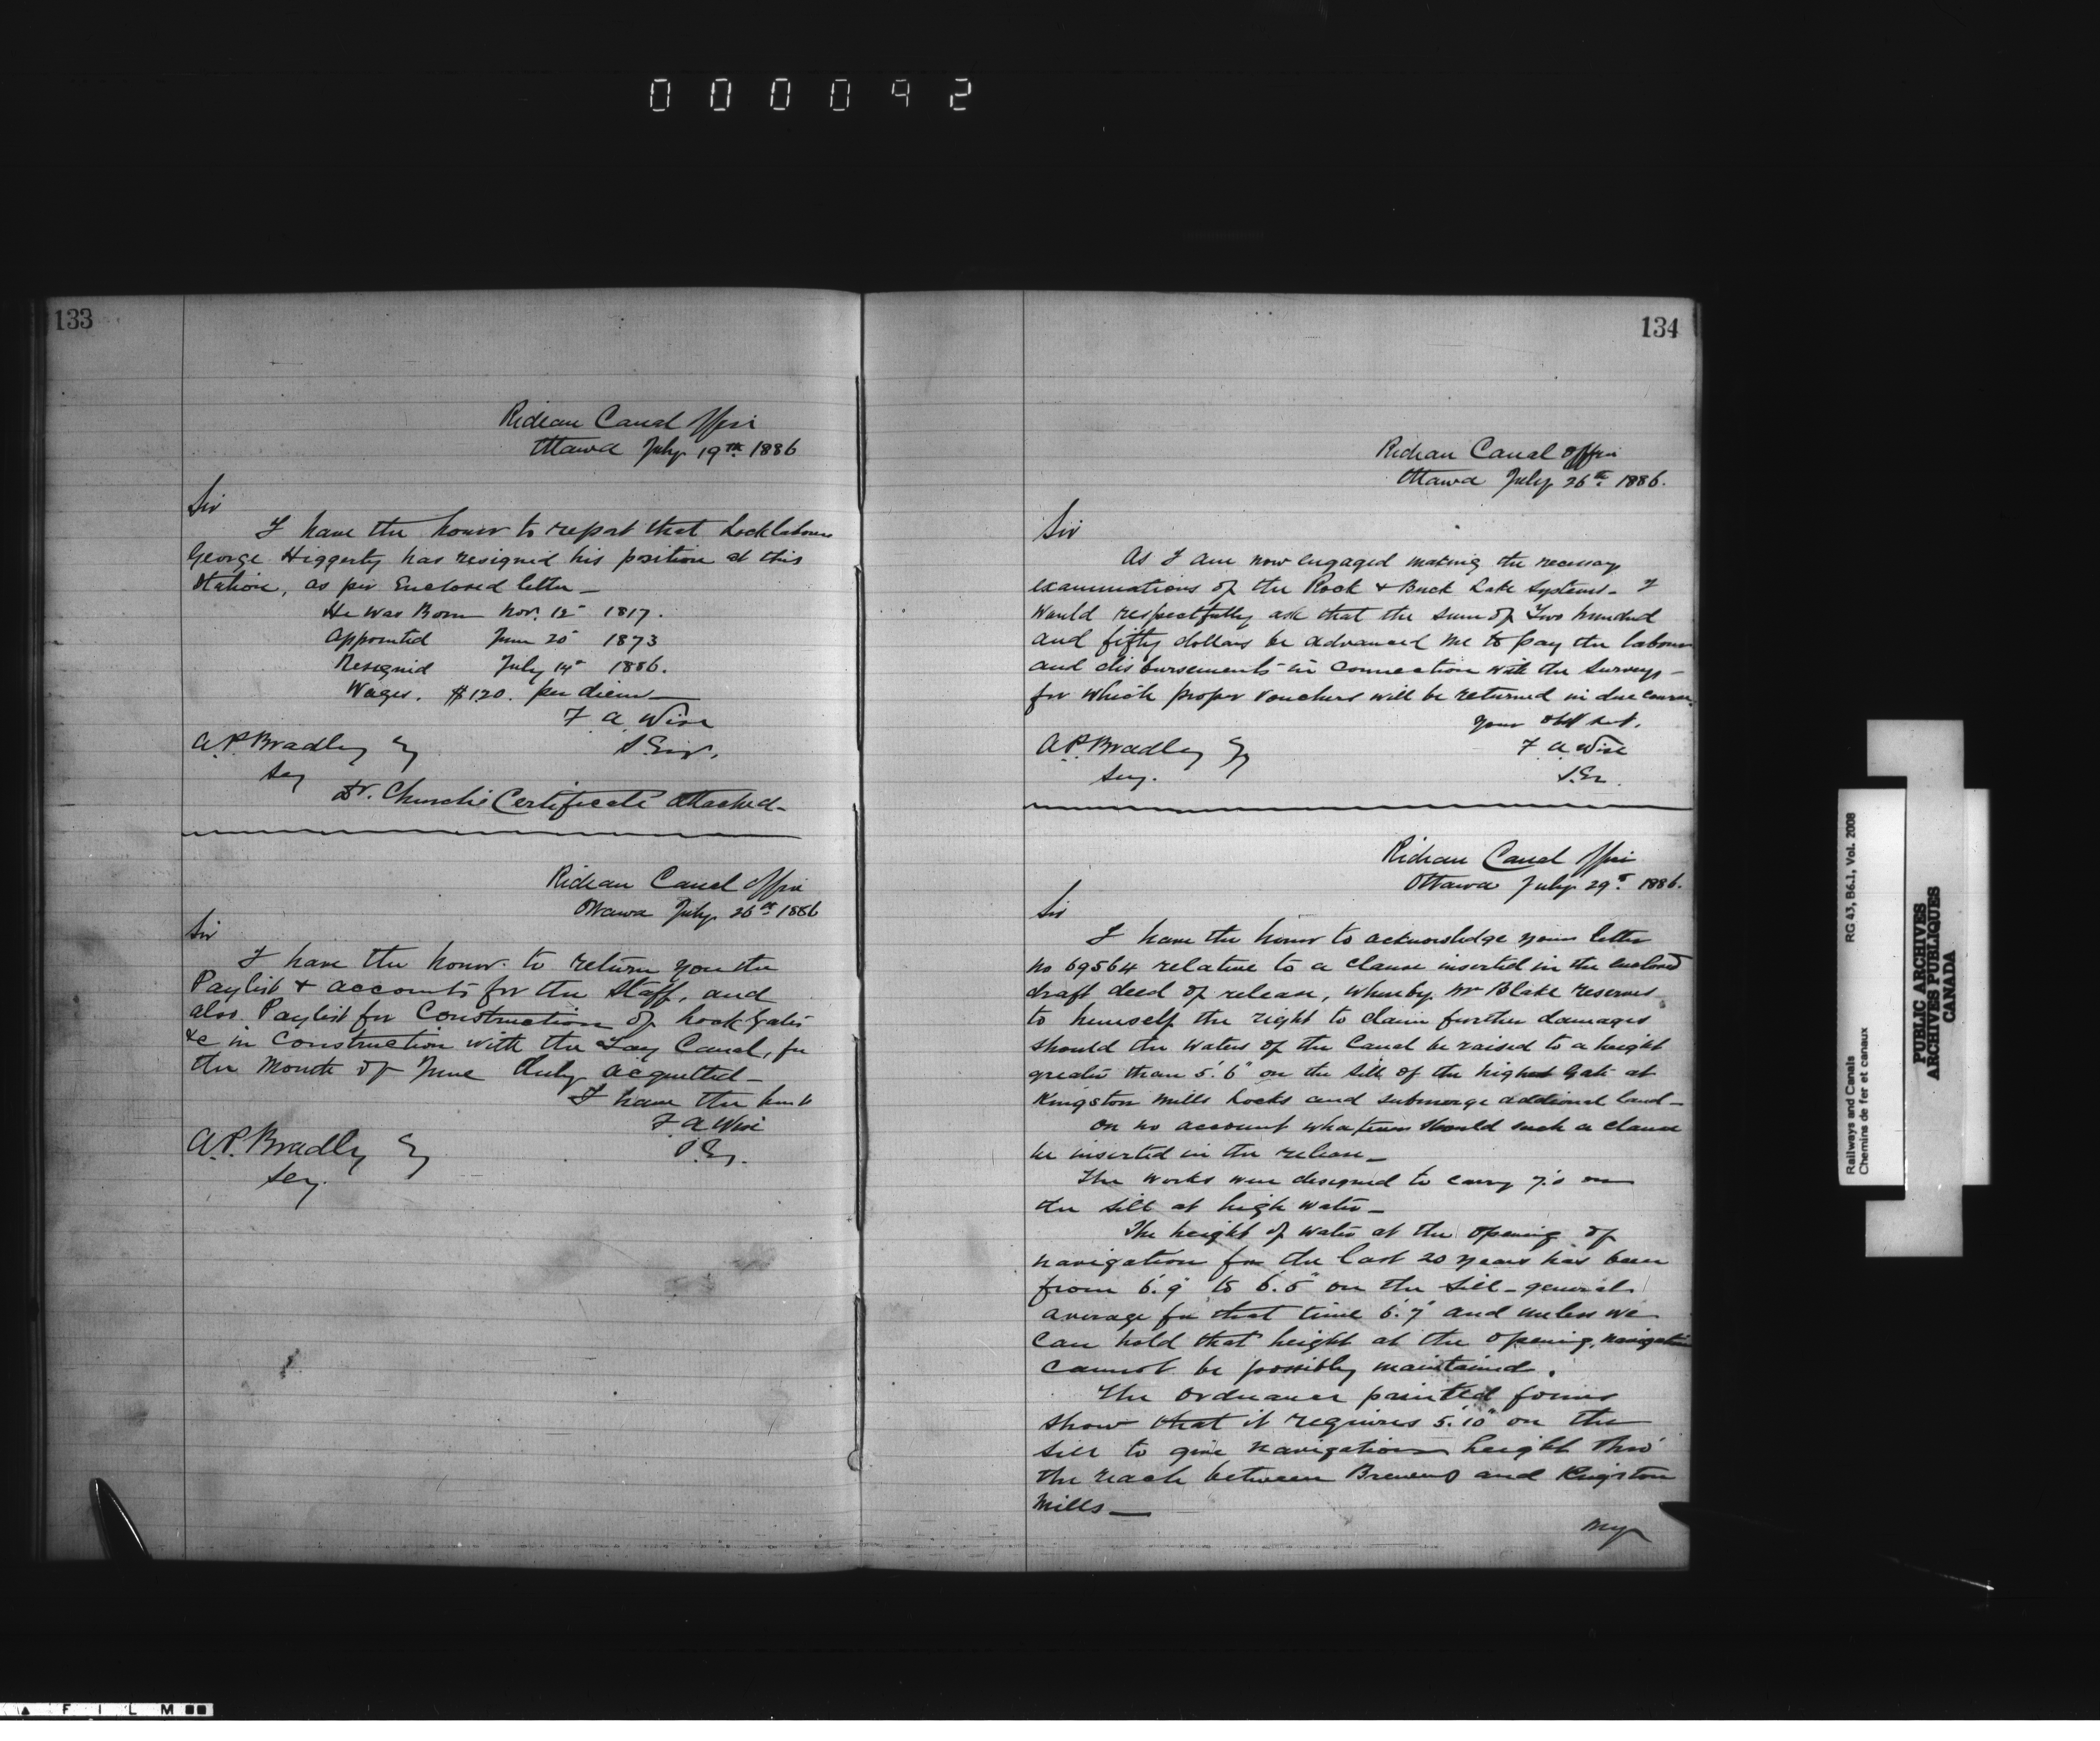 000092
133
Rideau Canal Office
Ottawa July 19th 1886
Sir
I have the honor to report that Locklabourer
George Higgerty has resigned his position at this
Station, as per Enclosed letter –
He was Born Nov. 12 1817.
Appointed June 20 1873
Resigned July 14 1886.
Wages. $1.20. per diem
F A Wise
S. Eng.
A.P. Bradley Esq
Secy
Dr. Church's Certificate attached –
Rideau Canal Office
Ottawa July 26th 1886
Sir
I have the honor to return you the
Paylist & accounts for the Staff, and
also Paylist for Construction of Lock Gates
&c in Construction with the Tay Canal, for
the Month of June duly acquitted –
I have the
F A Wise
S. Eg.
A.P. Bradley Esq
Secy.
134
Rideau Canal Office
Ottawa July 26th 1886.
Sir
As I am now engaged making the necessary
examinations of the Rock & Buck Lake Systems – I
would respectfully ask that the sum of Two hundred
and fifty dollars be advanced me to pay the labour
and disbursements in connection with the Surveys –
for which proper vouchers will be returned in due course.
Your Obt Svt.
F A Wise
S. En.
A.P. Bradley Esq
Secy.
Rideau Canal Office
Ottawa July 29th 1886.
Sir
I have the honor to acknowledge your letter
No 69564 relative to a clause inserted in the enclosed
draft deed of release, whereby Mr Blake reserves
to himself the right to claim further damages
should the waters of the Canal be raised to a height
greater than 5'.6" on the sill of the highest Gate at
Kingston Mills Locks and submerge additional land –
On no account whatever should such a clause
be inserted in the release –
The works were designed to carry 7'.0 on
the sill at high water –
The height of water at the opening of
navigation for the last 20 years has been
from 6'.9" to 6'.5" on the sill – general
average for that time 6'.7" and unless we
can hold that height at the opening, navigation
cannot be possibly maintained.
The Ordnance printed forms
show that it requires 5'.10" on the
sill to give navigation height thro'
the reach between Brewers and Kingston
Mills –
My
Railways and Canals RG 43, B6.1, Vol. 2008
Chemins de fer et canaux
PUBLIC ARCHIVES
ARCHIVES PUBLIQUES
CANADA
FILM